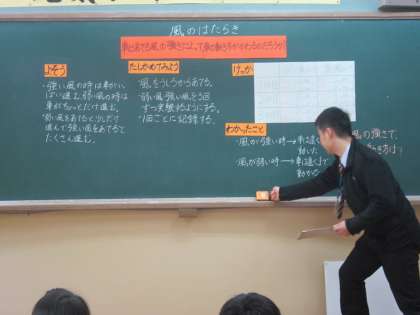 風のはたらき
車にあてる風の強さによって車の動き方がかわるのだろうか
よそう
・強い風の時は車がいっ
ぱい進む。弱い風の時は
車がちょっとだけ進む。
・弱い風をあてると少しだけ
進んで強い風をあてると
たくさん進む。
たしかめてみよう
・風をうしろからあてる。
・弱い風、強い風を3回
ずつ実験するようにする。
・1回ごとに記録する。
けっか
わかったこと
・風が強い時→車は遠く
動いた
・風が弱い時→車は近く
動かた
風の強さで、